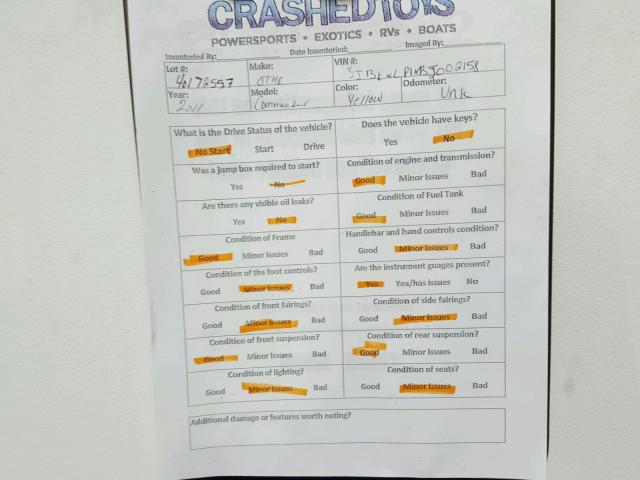 CRASHEDTOYS
POWERSPORTS • EXOTICS • RVs • BOATS
Inventoried By: Date Inventoried: Imaged By:
Lot #: Make: VIN #:
40172597 OTHE
Year: Model: Color: Odometer:
2011 Commander Yellow Unk
What is the Drive Status of the vehicle? Does the vehicle have keys?
No Start Start Drive Yes No
Was a jump box required to start? Condition of engine and transmission?
Yes No Good Minor Issues Bad
Are there any visible oil leaks? Condition of Fuel Tank
Yes No Good Minor Issues Bad
Condition of Frame Handlebar and hand controls condition?
Good Minor Issues Bad Good Minor Issues Bad
Condition of the foot controls? Are the instrument guages present?
Good Minor Issues Bad Yes Yes/has issues No
Condition of front fairings? Condition of side fairings?
Good Minor Issues Bad Good Minor Issues Bad
Condition of front suspension? Condition of rear suspension?
Good Minor Issues Bad Good Minor Issues Bad
Condition of lighting? Condition of seats?
Good Minor Issues Bad Good Minor Issues Bad
Additional damage or features worth noting?